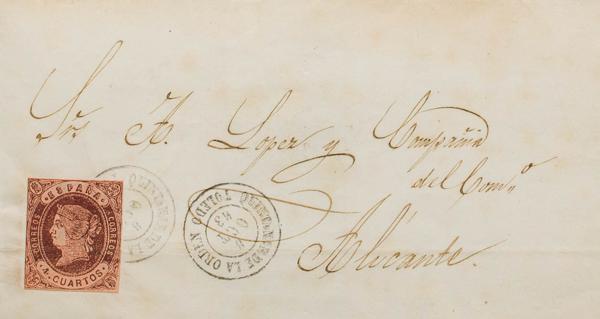 Sres A. Lopez y Compañia
del Comº
Alicante.
ESPAÑA
CORREOS
CORREOS
4 CUARTOS
QUINTANAR DE LA ORDEN
TOLEDO
63
QUINTANAR DE LA